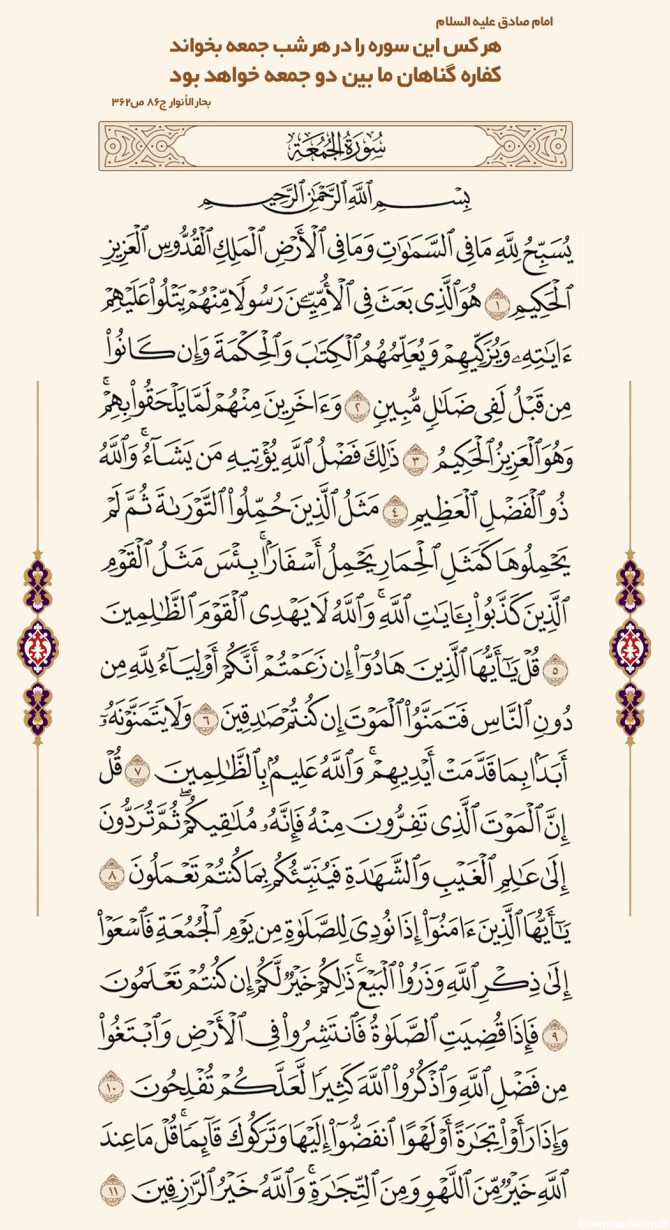 امام صادق علیه السلام
هر کس این سوره را در هر شب جمعه بخواند
کفاره گناهان ما بین دو جمعه خواهد بود
بحار الأنوار ج۸۶ ص۳۶۲
سُورَةُ الجُمُعَةِ
بِسْمِ ٱللَّهِ ٱلرَّحْمَٰنِ ٱلرَّحِيمِ
يُسَبِّحُ لِلَّهِ مَا فِي ٱلسَّمَٰوَٰتِ وَمَا فِي ٱلْأَرْضِ ٱلْمَلِكِ ٱلْقُدُّوسِ ٱلْعَزِيزِ
ٱلْحَكِيمِ ١ هُوَ ٱلَّذِي بَعَثَ فِي ٱلْأُمِّيِّـۧنَ رَسُولًا مِّنْهُمْ يَتْلُوا۟ عَلَيْهِمْ
ءَايَٰتِهِۦ وَيُزَكِّيهِمْ وَيُعَلِّمُهُمُ ٱلْكِتَٰبَ وَٱلْحِكْمَةَ وَإِن كَانُوا۟
مِن قَبْلُ لَفِي ضَلَٰلٍ مُّبِينٍ ٢ وَءَاخَرِينَ مِنْهُمْ لَمَّا يَلْحَقُوا۟ بِهِمْ ۚ
وَهُوَ ٱلْعَزِيزُ ٱلْحَكِيمُ ٣ ذَٰلِكَ فَضْلُ ٱللَّهِ يُؤْتِيهِ مَن يَشَآءُ ۚ وَٱللَّهُ
ذُو ٱلْفَضْلِ ٱلْعَظِيمِ ٤ مَثَلُ ٱلَّذِينَ حُمِّلُوا۟ ٱلتَّوْرَىٰةَ ثُمَّ لَمْ
يَحْمِلُوهَا كَمَثَلِ ٱلْحِمَارِ يَحْمِلُ أَسْفَارًۢا ۚ بِئْسَ مَثَلُ ٱلْقَوْمِ
ٱلَّذِينَ كَذَّبُوا۟ بِـَٔايَٰتِ ٱللَّهِ ۚ وَٱللَّهُ لَا يَهْدِي ٱلْقَوْمَ ٱلظَّٰلِمِينَ
٥ قُلْ يَٰٓأَيُّهَا ٱلَّذِينَ هَادُوٓا۟ إِن زَعَمْتُمْ أَنَّكُمْ أَوْلِيَآءُ لِلَّهِ مِن
دُونِ ٱلنَّاسِ فَتَمَنَّوُا۟ ٱلْمَوْتَ إِن كُنتُمْ صَٰدِقِينَ ٦ وَلَا يَتَمَنَّوْنَهُۥٓ
أَبَدًۢا بِمَا قَدَّمَتْ أَيْدِيهِمْ ۚ وَٱللَّهُ عَلِيمٌۢ بِٱلظَّٰلِمِينَ ٧ قُلْ
إِنَّ ٱلْمَوْتَ ٱلَّذِي تَفِرُّونَ مِنْهُ فَإِنَّهُۥ مُلَٰقِيكُمْ ۖ ثُمَّ تُرَدُّونَ
إِلَىٰ عَٰلِمِ ٱلْغَيْبِ وَٱلشَّهَٰدَةِ فَيُنَبِّئُكُم بِمَا كُنتُمْ تَعْمَلُونَ ٨
يَٰٓأَيُّهَا ٱلَّذِينَ ءَامَنُوٓا۟ إِذَا نُودِيَ لِلصَّلَوٰةِ مِن يَوْمِ ٱلْجُمُعَةِ فَٱسْعَوْا۟
إِلَىٰ ذِكْرِ ٱللَّهِ وَذَرُوا۟ ٱلْبَيْعَ ۚ ذَٰلِكُمْ خَيْرٌ لَّكُمْ إِن كُنتُمْ تَعْلَمُونَ
٩ فَإِذَا قُضِيَتِ ٱلصَّلَوٰةُ فَٱنتَشِرُوا۟ فِي ٱلْأَرْضِ وَٱبْتَغُوا۟
مِن فَضْلِ ٱللَّهِ وَٱذْكُرُوا۟ ٱللَّهَ كَثِيرًا لَّعَلَّكُمْ تُفْلِحُونَ ١٠
وَإِذَا رَأَوْا۟ تِجَٰرَةً أَوْ لَهْوًا ٱنفَضُّوٓا۟ إِلَيْهَا وَتَرَكُوكَ قَآئِمًا ۚ قُلْ مَا عِندَ
ٱللَّهِ خَيْرٌ مِّنَ ٱللَّهْوِ وَمِنَ ٱلتِّجَٰرَةِ ۚ وَٱللَّهُ خَيْرُ ٱلرَّٰزِقِينَ ١١